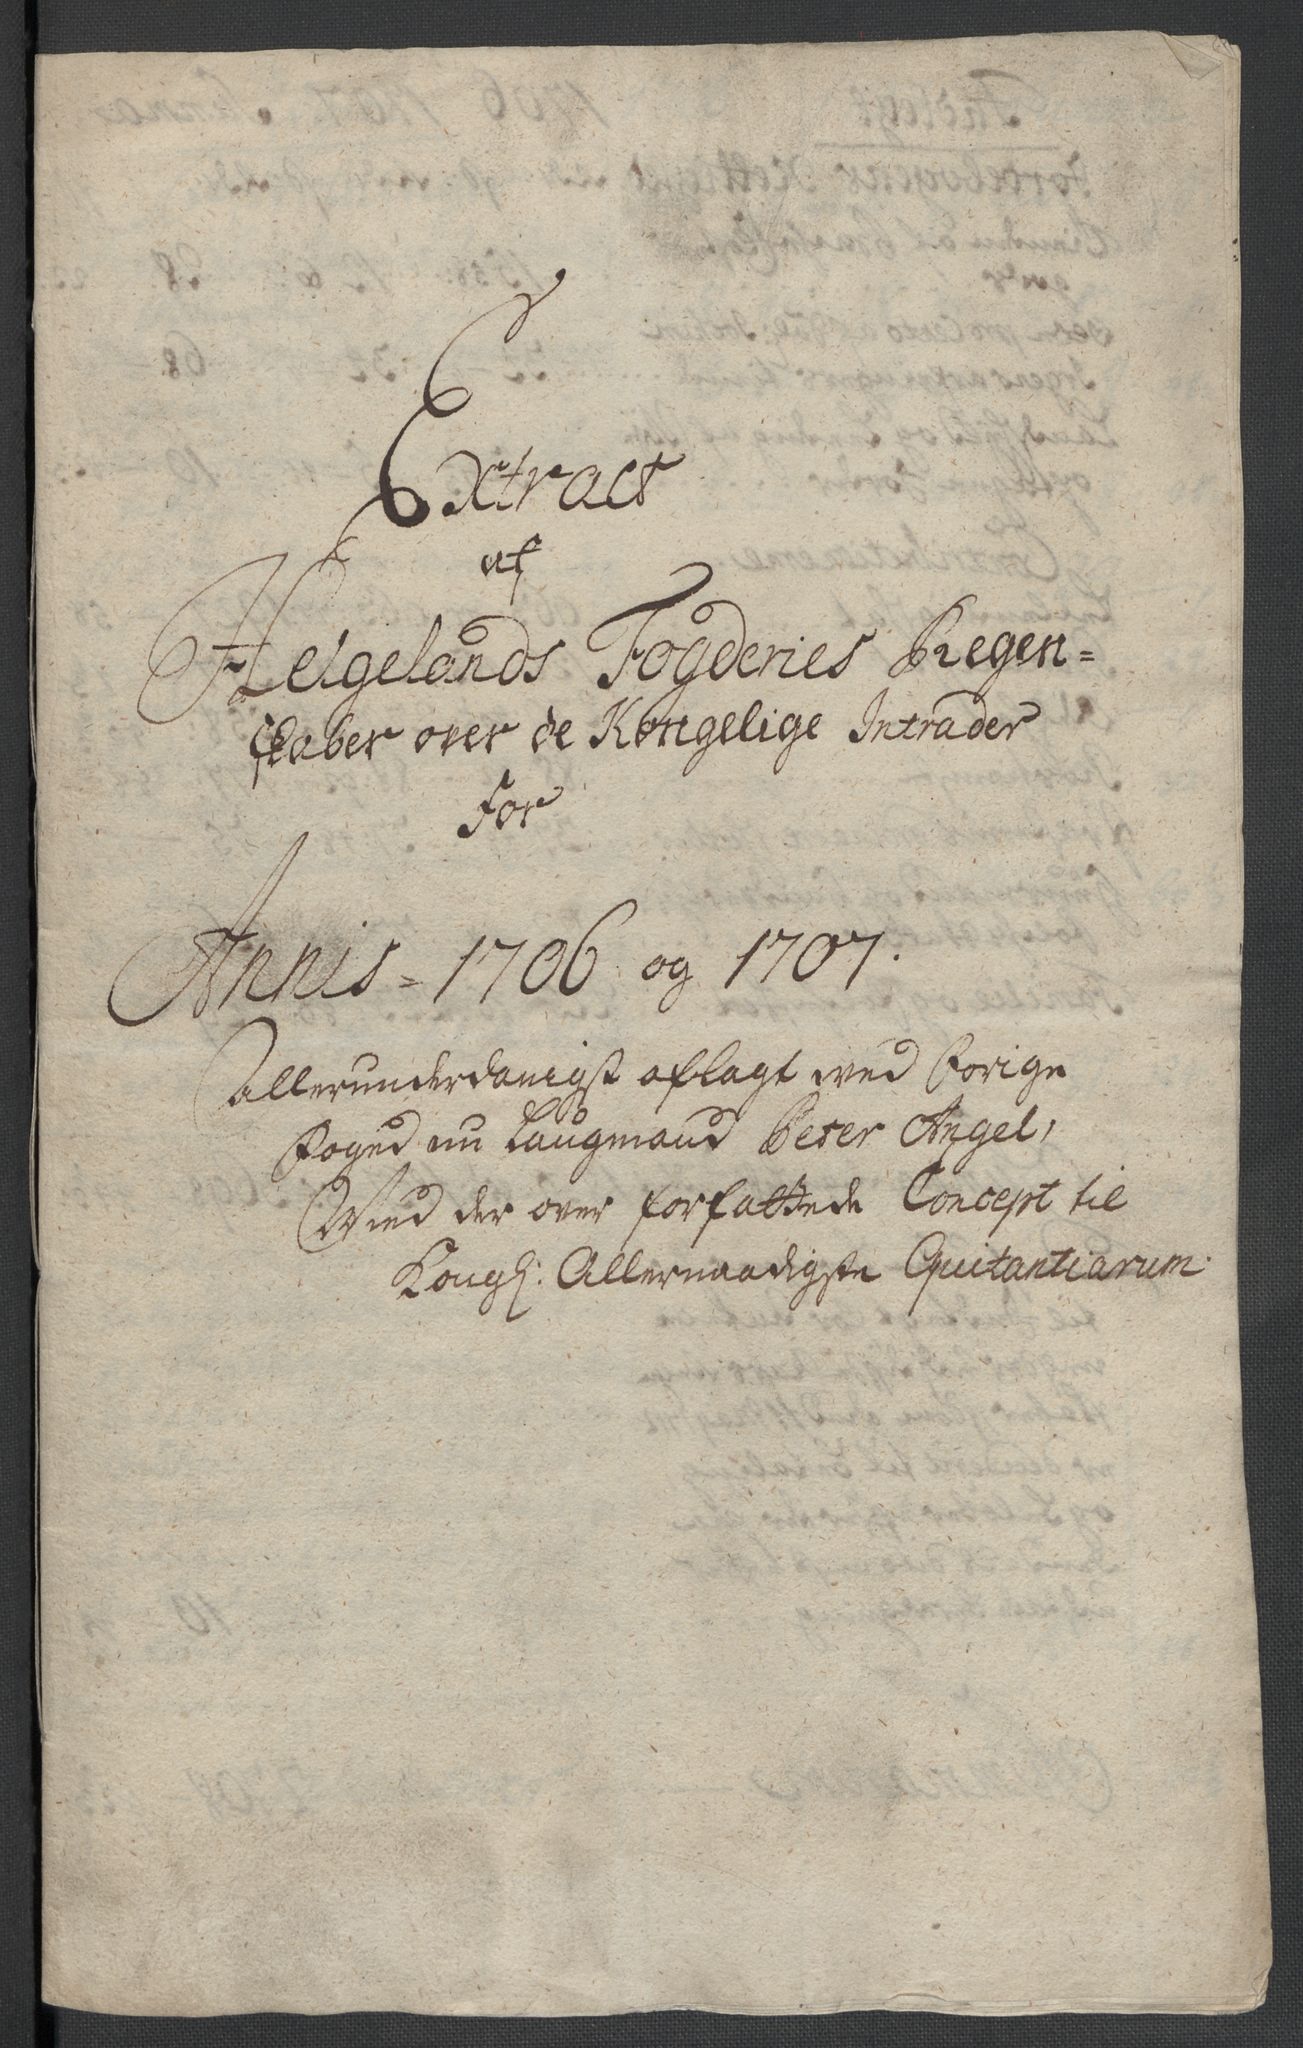 Extract
af
Helgelands Fogderies Regen=
skaber over de Kongelige Intrader
For
Annis = 1706 og 1707.
Allerunderdanigst aflagt ved forige
foged nu Laugmand Peter Angel,
Med der over forfattede Concept til
Kongl: Allernaadigste Quitantiarum.